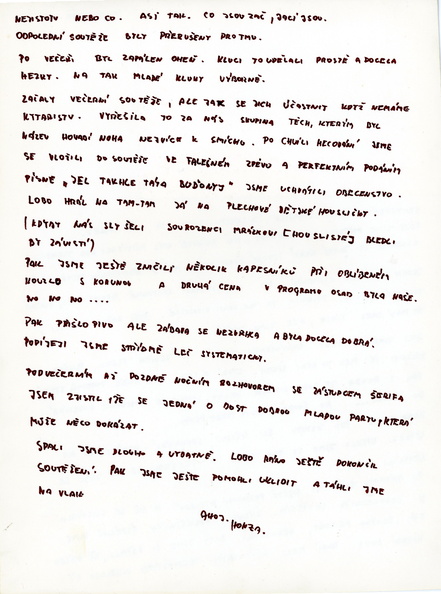 NEJISTOTU NEBO CO. ASI TAK. CO JSOU ZAČ, JACÍ JSOU.
ODPOLEDNÍ SOUTĚŽE BYLY PŘERUŠENY PRO TMU.
PO VEČEŘI BYL ZAPÁLEN OHEŇ. KLUCI TO UDĚLALI PROSTĚ A DOCELA
HEZKY. NA TAK MLADÉ KLUKY VÝBORNĚ.
ZAČALY VEČERNÍ SOUTĚŽE, ALE JAK SE JICH ÚČASTNIT KDYŽ NEMÁME
KYTARISTU. VYŘEŠILA TO ZA NÁS SKUPINA TĚCH, KTERÝM BYL
NÁZEV HOVADÍ NOHA NEJVÍCE K SMÍCHU. PO CHVÍLI JSME
SE VLOŽILI DO SOUTĚŽE VE FALEŠNÉM ZPĚVU A PERFEKTNÍM PODÁNÍM
PÍSNĚ „JEL TAKHLE TÁTA BUĎONNÝ" JSME UCHVÁTILI OBECENSTVO.
LOBO HRÁL NA TAM-TAM JÁ NA PLECHOVÉ DĚTSKÉ HOUSLIČKY.
(KDYBY NÁS SLYŠELI SOUROZENCI MRÁČKOVI (HOUSLISTÉ) BLEDLI
BY ZÁVISTÍ)
PAK JSME JEŠTĚ ZNIČILI NĚKOLIK KAPESNÍKŮ PŘI OBLÍBENÉM
KOUZLU S KORUNOU A DRUHÁ CENA V PROGRAMU OSAD BYLA NAŠE.
NO NO NO ....
PAK PŘIŠLO PIVO ALE ZÁBAVA SE NEZVRHLA A BYLA DOCELA DOBRÁ.
POPÍJELI JSME STŘÍDMĚ LEČ SYSTEMATICKY.
PODVEČERNÍM AŽ POZDNĚ NOČNÍM ROZHOVOREM SE ZÁSTUPCEM ŠERIFA
JSEM ZJISTIL, ŽE SE JEDNÁ O DOST DOBROU MLADOU PARTU, KTERÁ
MŮŽE NĚCO DOKÁZAT.
SPALI JSME DLOUHO A VYDATNĚ. LOBO RÁNO JEŠTĚ DOKONČIL
SOUTĚŽENÍ. PAK JSME JEŠTĚ POMOHLI UKLIDIT A TÁHLI JME
NA VLAK
AHOJ.
HONZA.